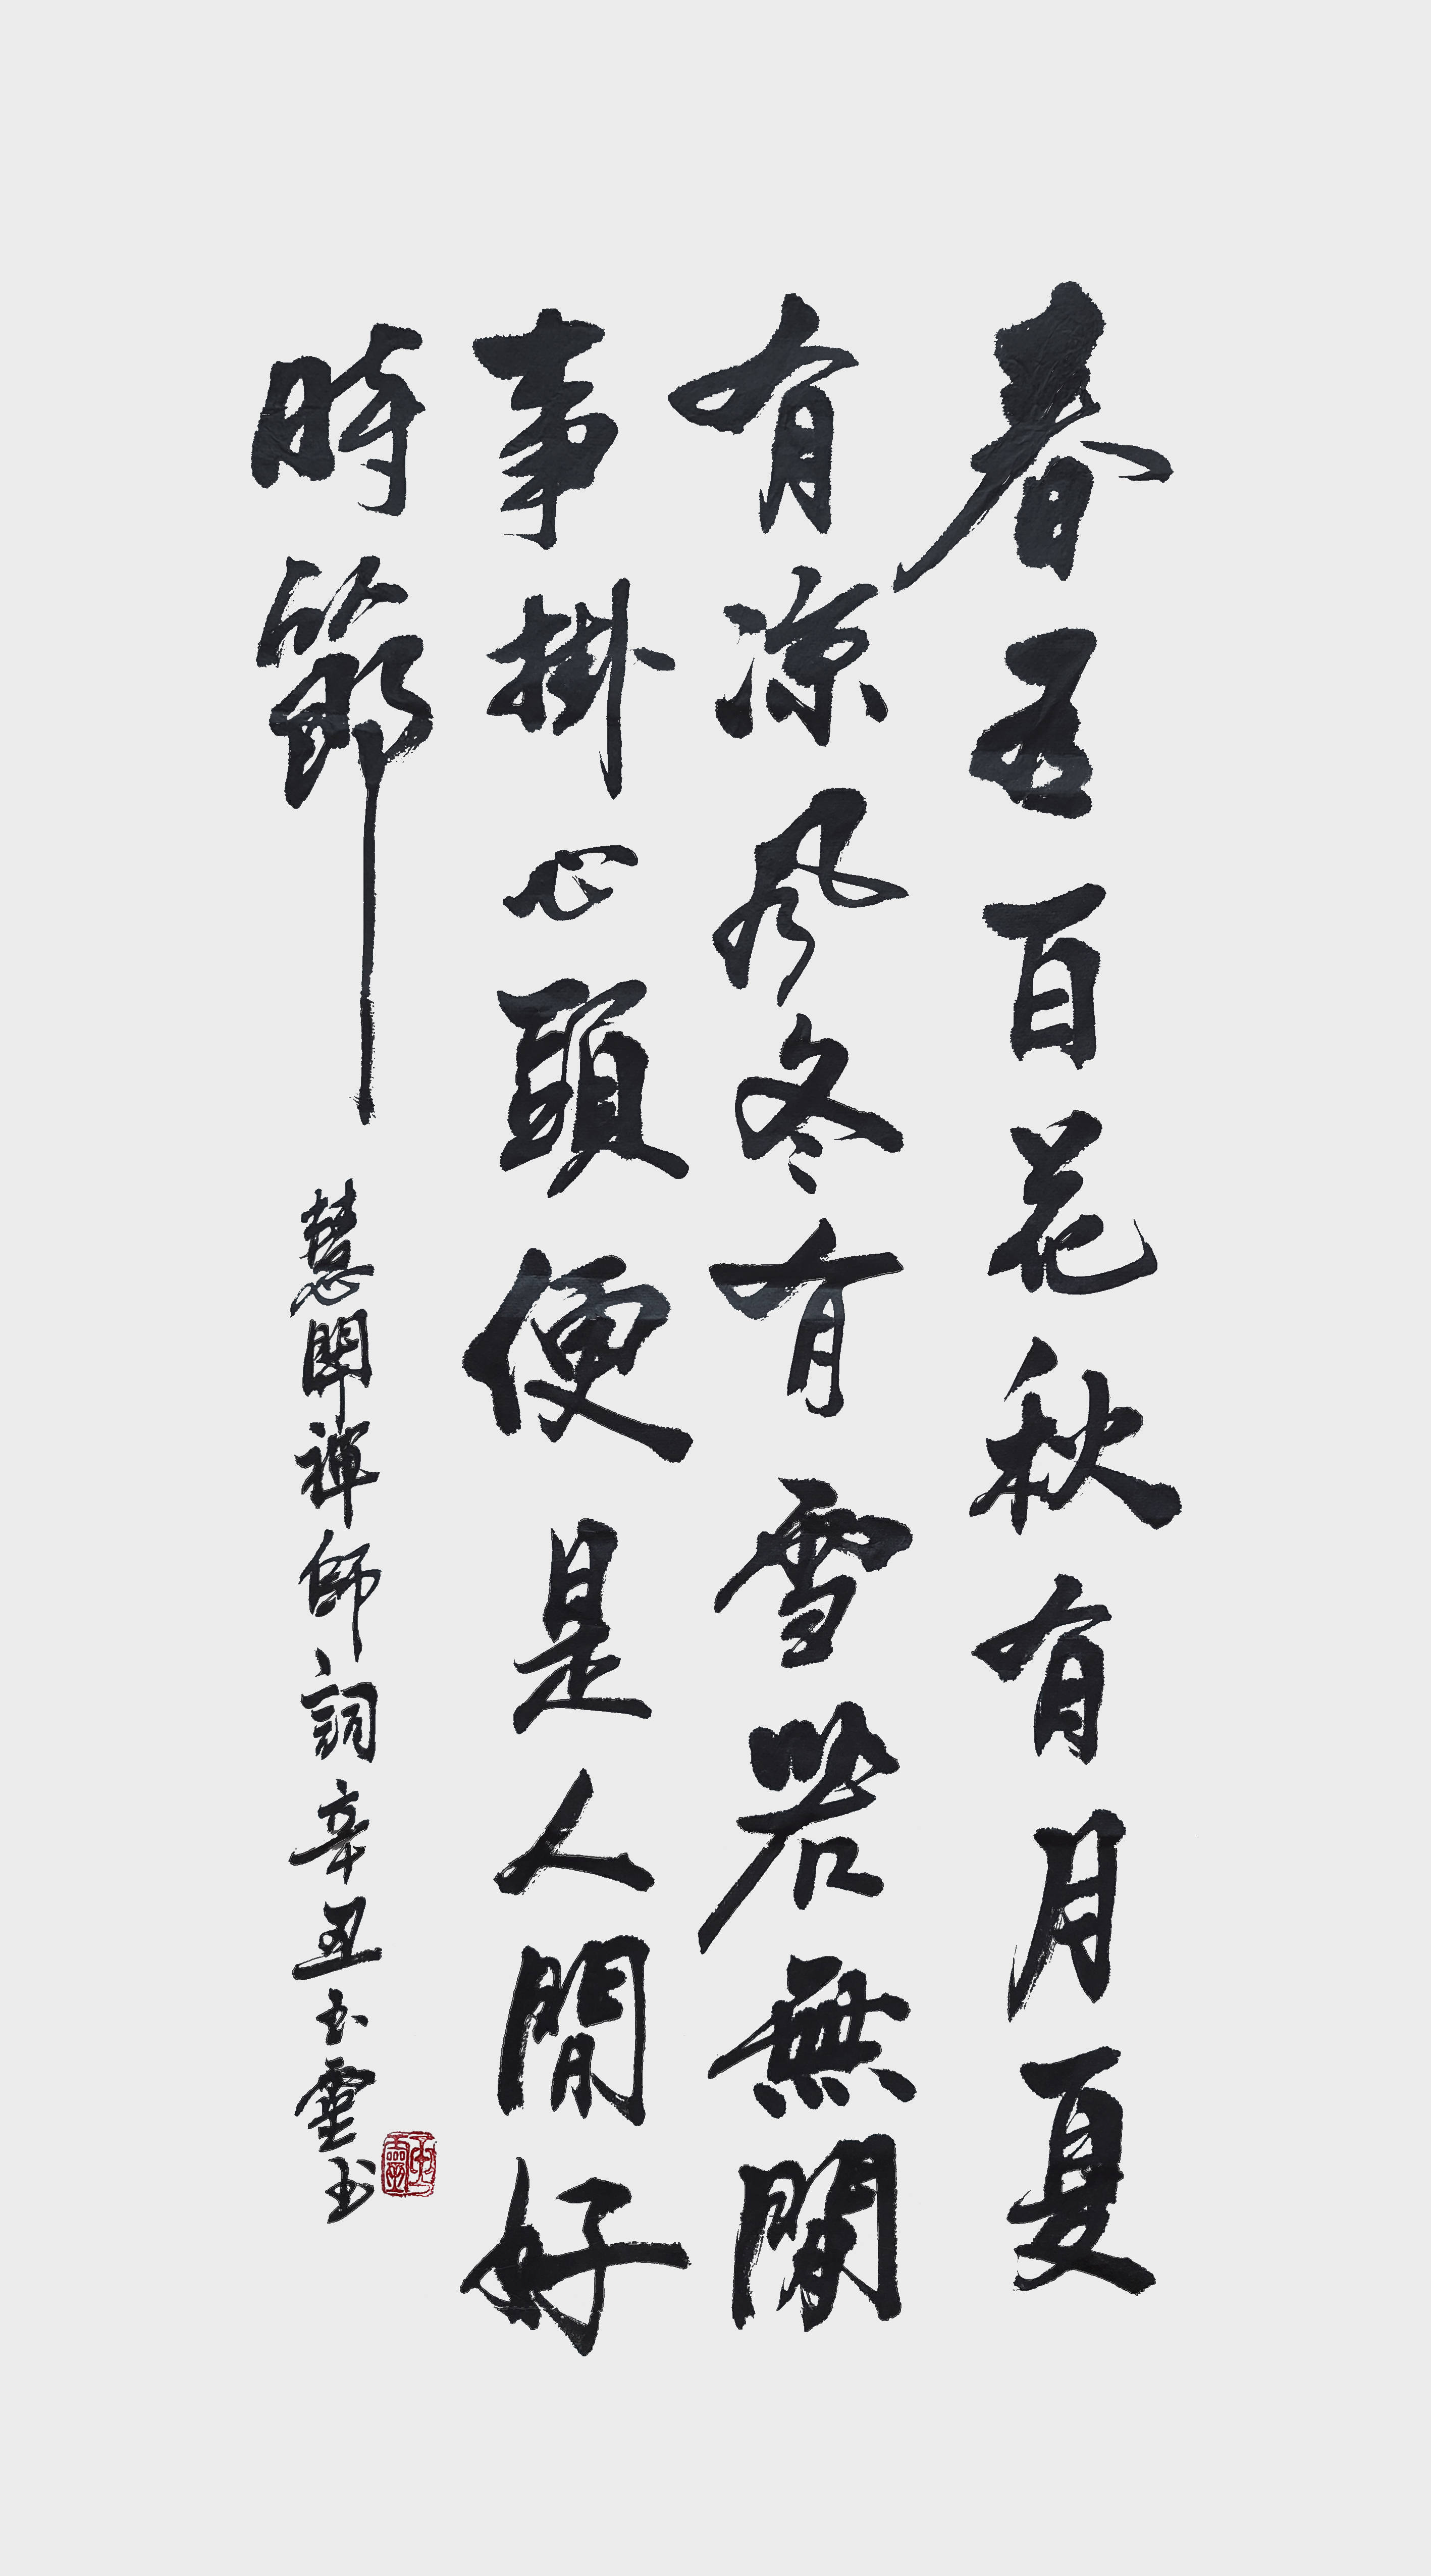 春有百花秋有月夏
有凉風冬有雪若無閑
事掛心頭便是人閒好
時節
慧開禪師詞辛丑玉靈书
玉靈